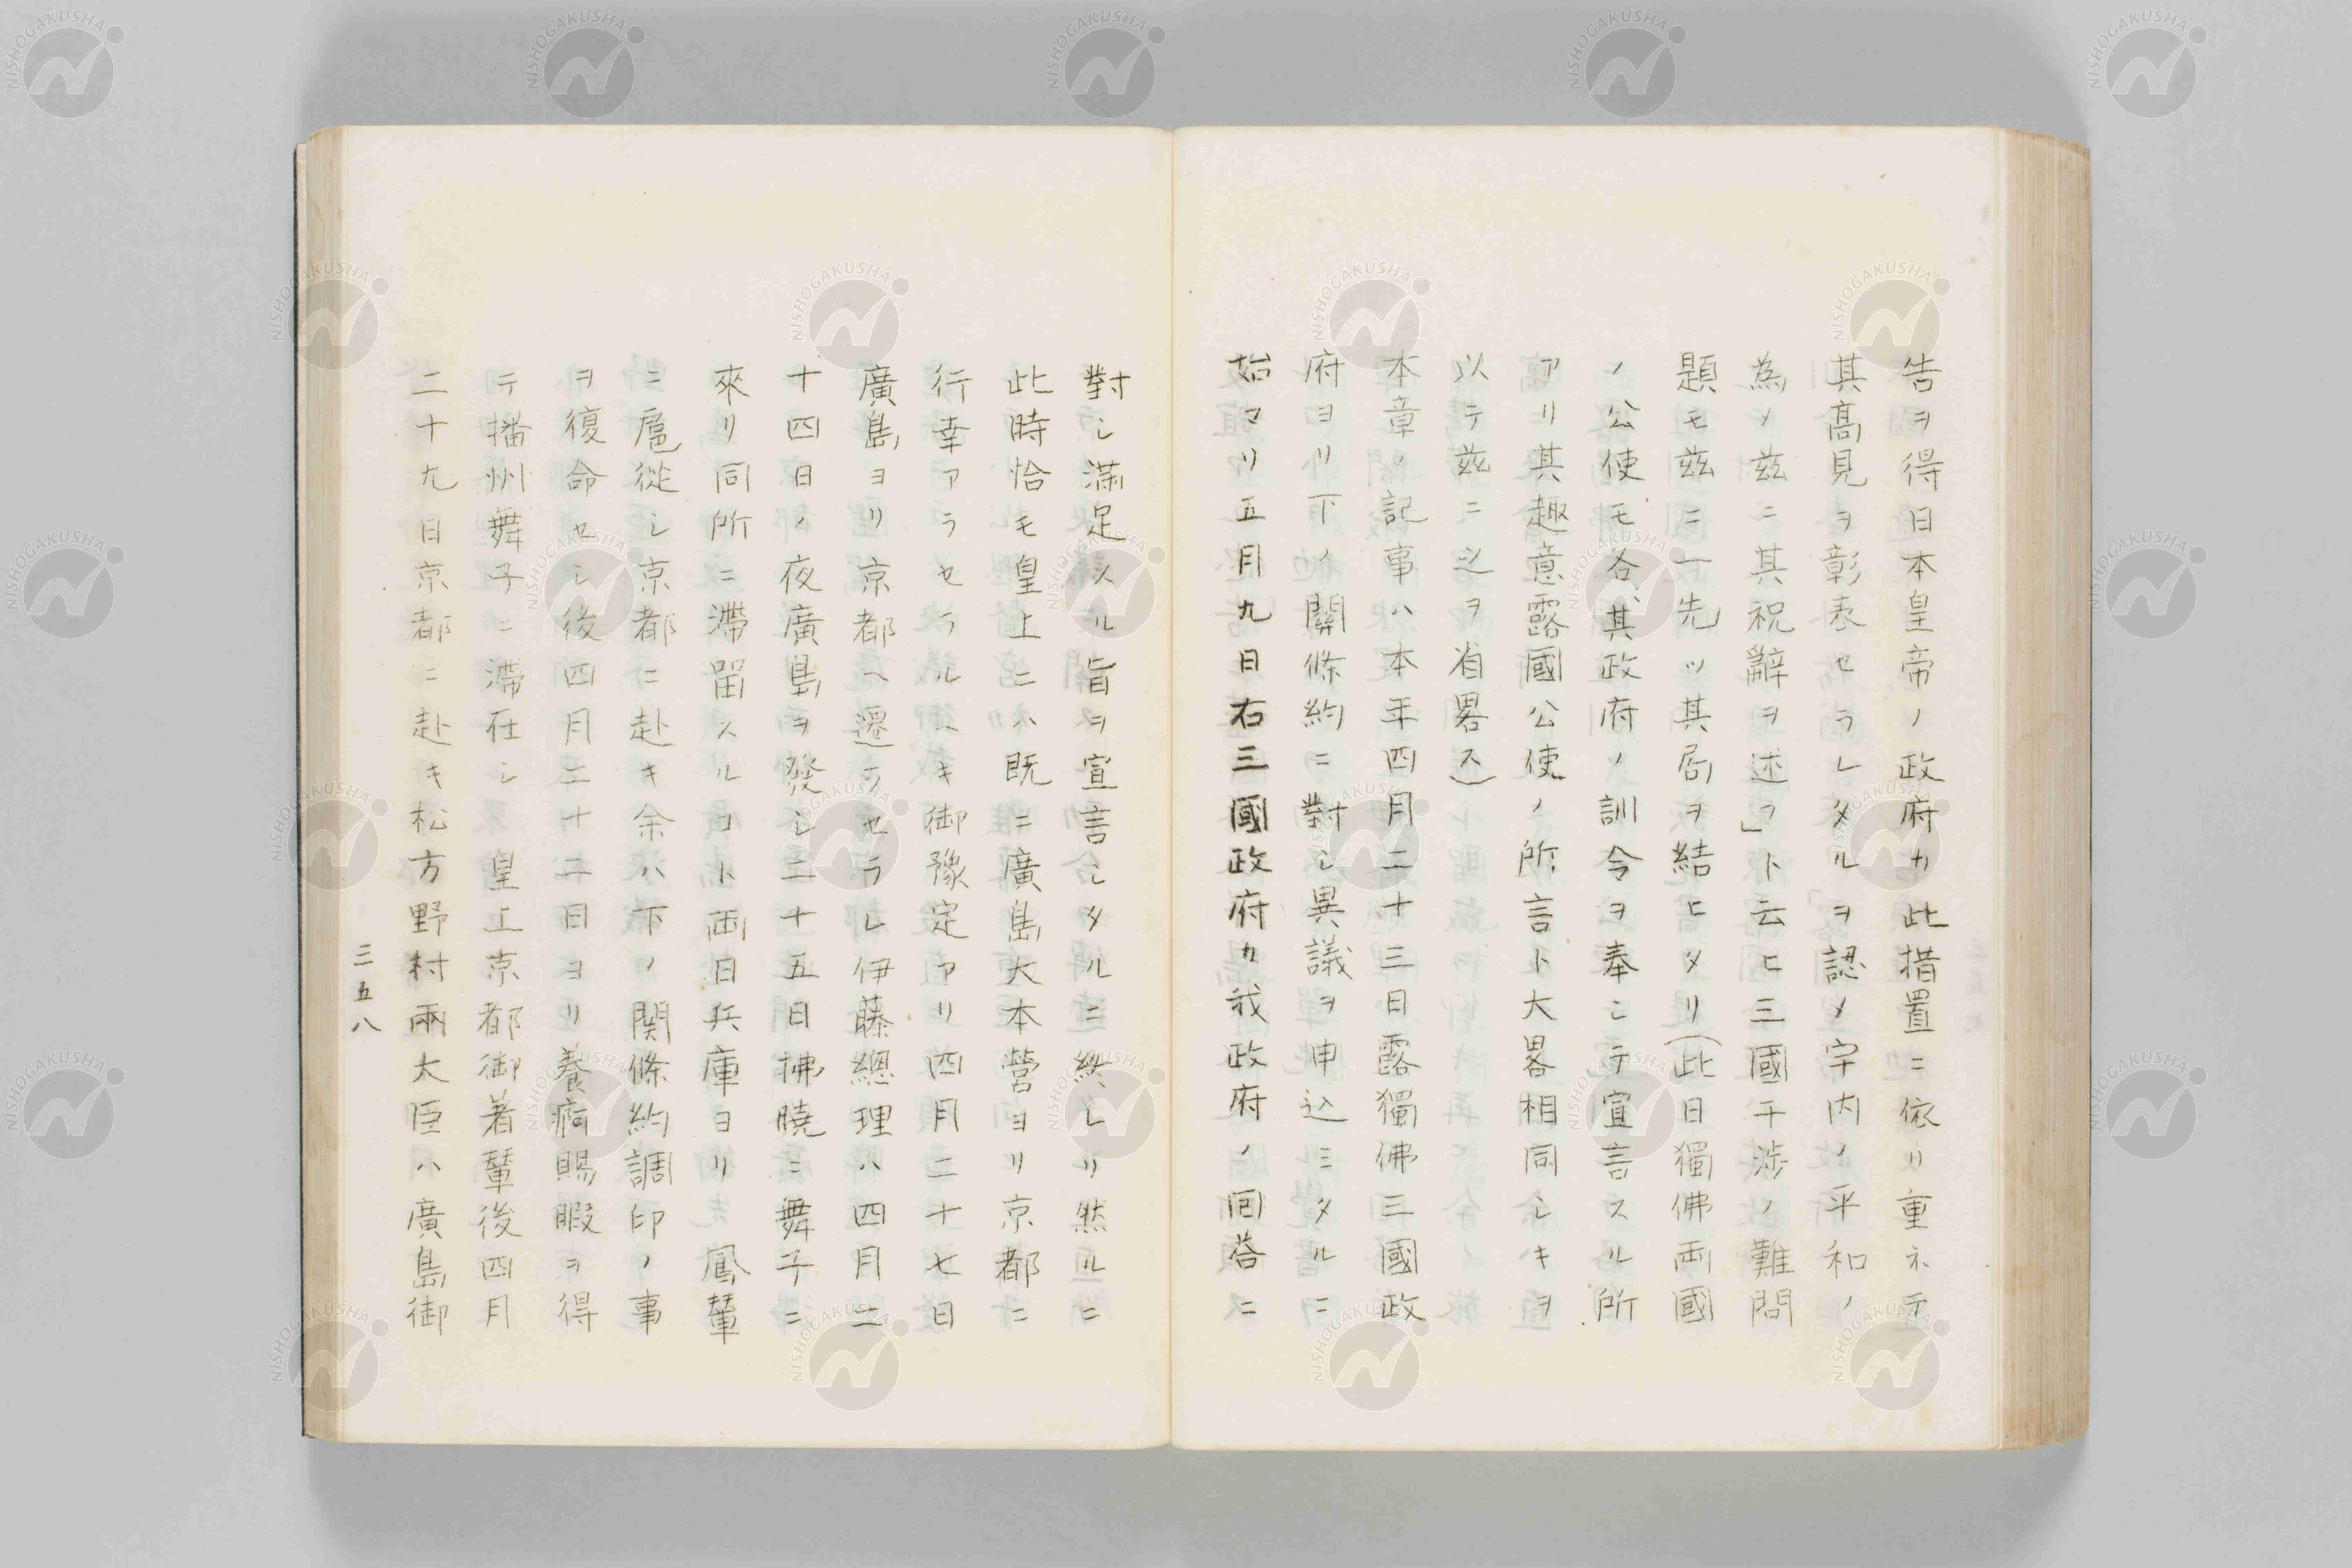 告ヲ得日本皇帝ノ政府カ此措置ニ依リ重ネテ
其高見ヲ彰表セラレタルヲ認メ宇内ノ平和ノ
為メ茲ニ其祝辭ヲ述フ」ト云ヒ三國干渉ノ難問
題モ茲ニ一先ツ其局ヲ結ヒタリ(此日獨佛両國
ノ公使モ各、其政府ノ訓令ヲ奉シテ宣言スル所
アリ其趣意露國公使ノ所言ト大畧相同シキヲ
以テ茲ニ之ヲ省畧ス)
本章ノ記事ハ本年四月二十三日露獨佛三國政
府ヨリ下ノ關條約ニ對シ異議ヲ申込ミタルニ
始マリ五月九日右三國政府カ我政府ノ回答ニ
對シ滿足スル旨ヲ宣言シタルニ終レリ然ルニ
此時恰モ皇上ニハ既ニ廣島大本營ヨリ京都ニ
行幸アラセラルヘキ御豫定アリ四月二十七日
廣島ヨリ京都ヘ遷ラセラレ伊藤總理ハ四月二
十四日ノ夜廣島ヲ發シ二十五日拂曉ニ舞子ニ
來リ同所ニ滯留スルコト両日兵庫ヨリ 鳳輦
ニ扈從シ京都ニ赴キ余ハ下ノ関條約調印ノ事
ヲ復命セシ後四月二十二日ヨリ養痾賜暇ヲ得
テ播州舞子ニ滯在シ 皇上京都御着輦後四月
二十九日京都ニ赴キ松方野村兩大臣ハ廣島御
三五八
NISHOGAKUSHA